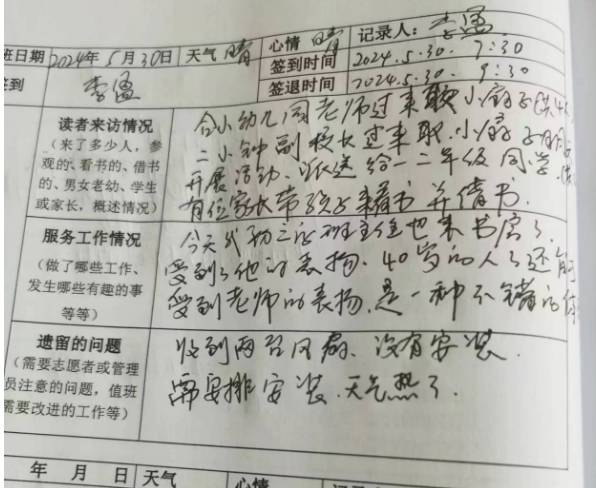 班日期 2024年5月30日 天气 晴 心情 晴 记录人: 李
签到时间 2024.5.30. 7:30
到 李 签退时间 2024.5.30. 9:30
读者来访情况
(来了多少人,参
观的、看书的、借书
的、男女老幼、学生
或家长,概述情况)
合小幼儿园老师过来取小扇子
二小钟副校长过来取小扇子
开展活动、派送给一二年级同学、
有位家长带孩子来看书并借书.
服务工作情况
(做了哪些工作、
发生哪些有趣的事
等等)
今天我初三的班主任也来书房了
受到了他的表扬、40岁的人了还能
受到老师的表扬.是一种不错的体
遗留的问题
(需要志愿者或管理
员注意的问题,值班
需要改进的工作等)
收到两台风扇、没有安装.
需要排安装.天气热了.
年 月 日 天气 心情